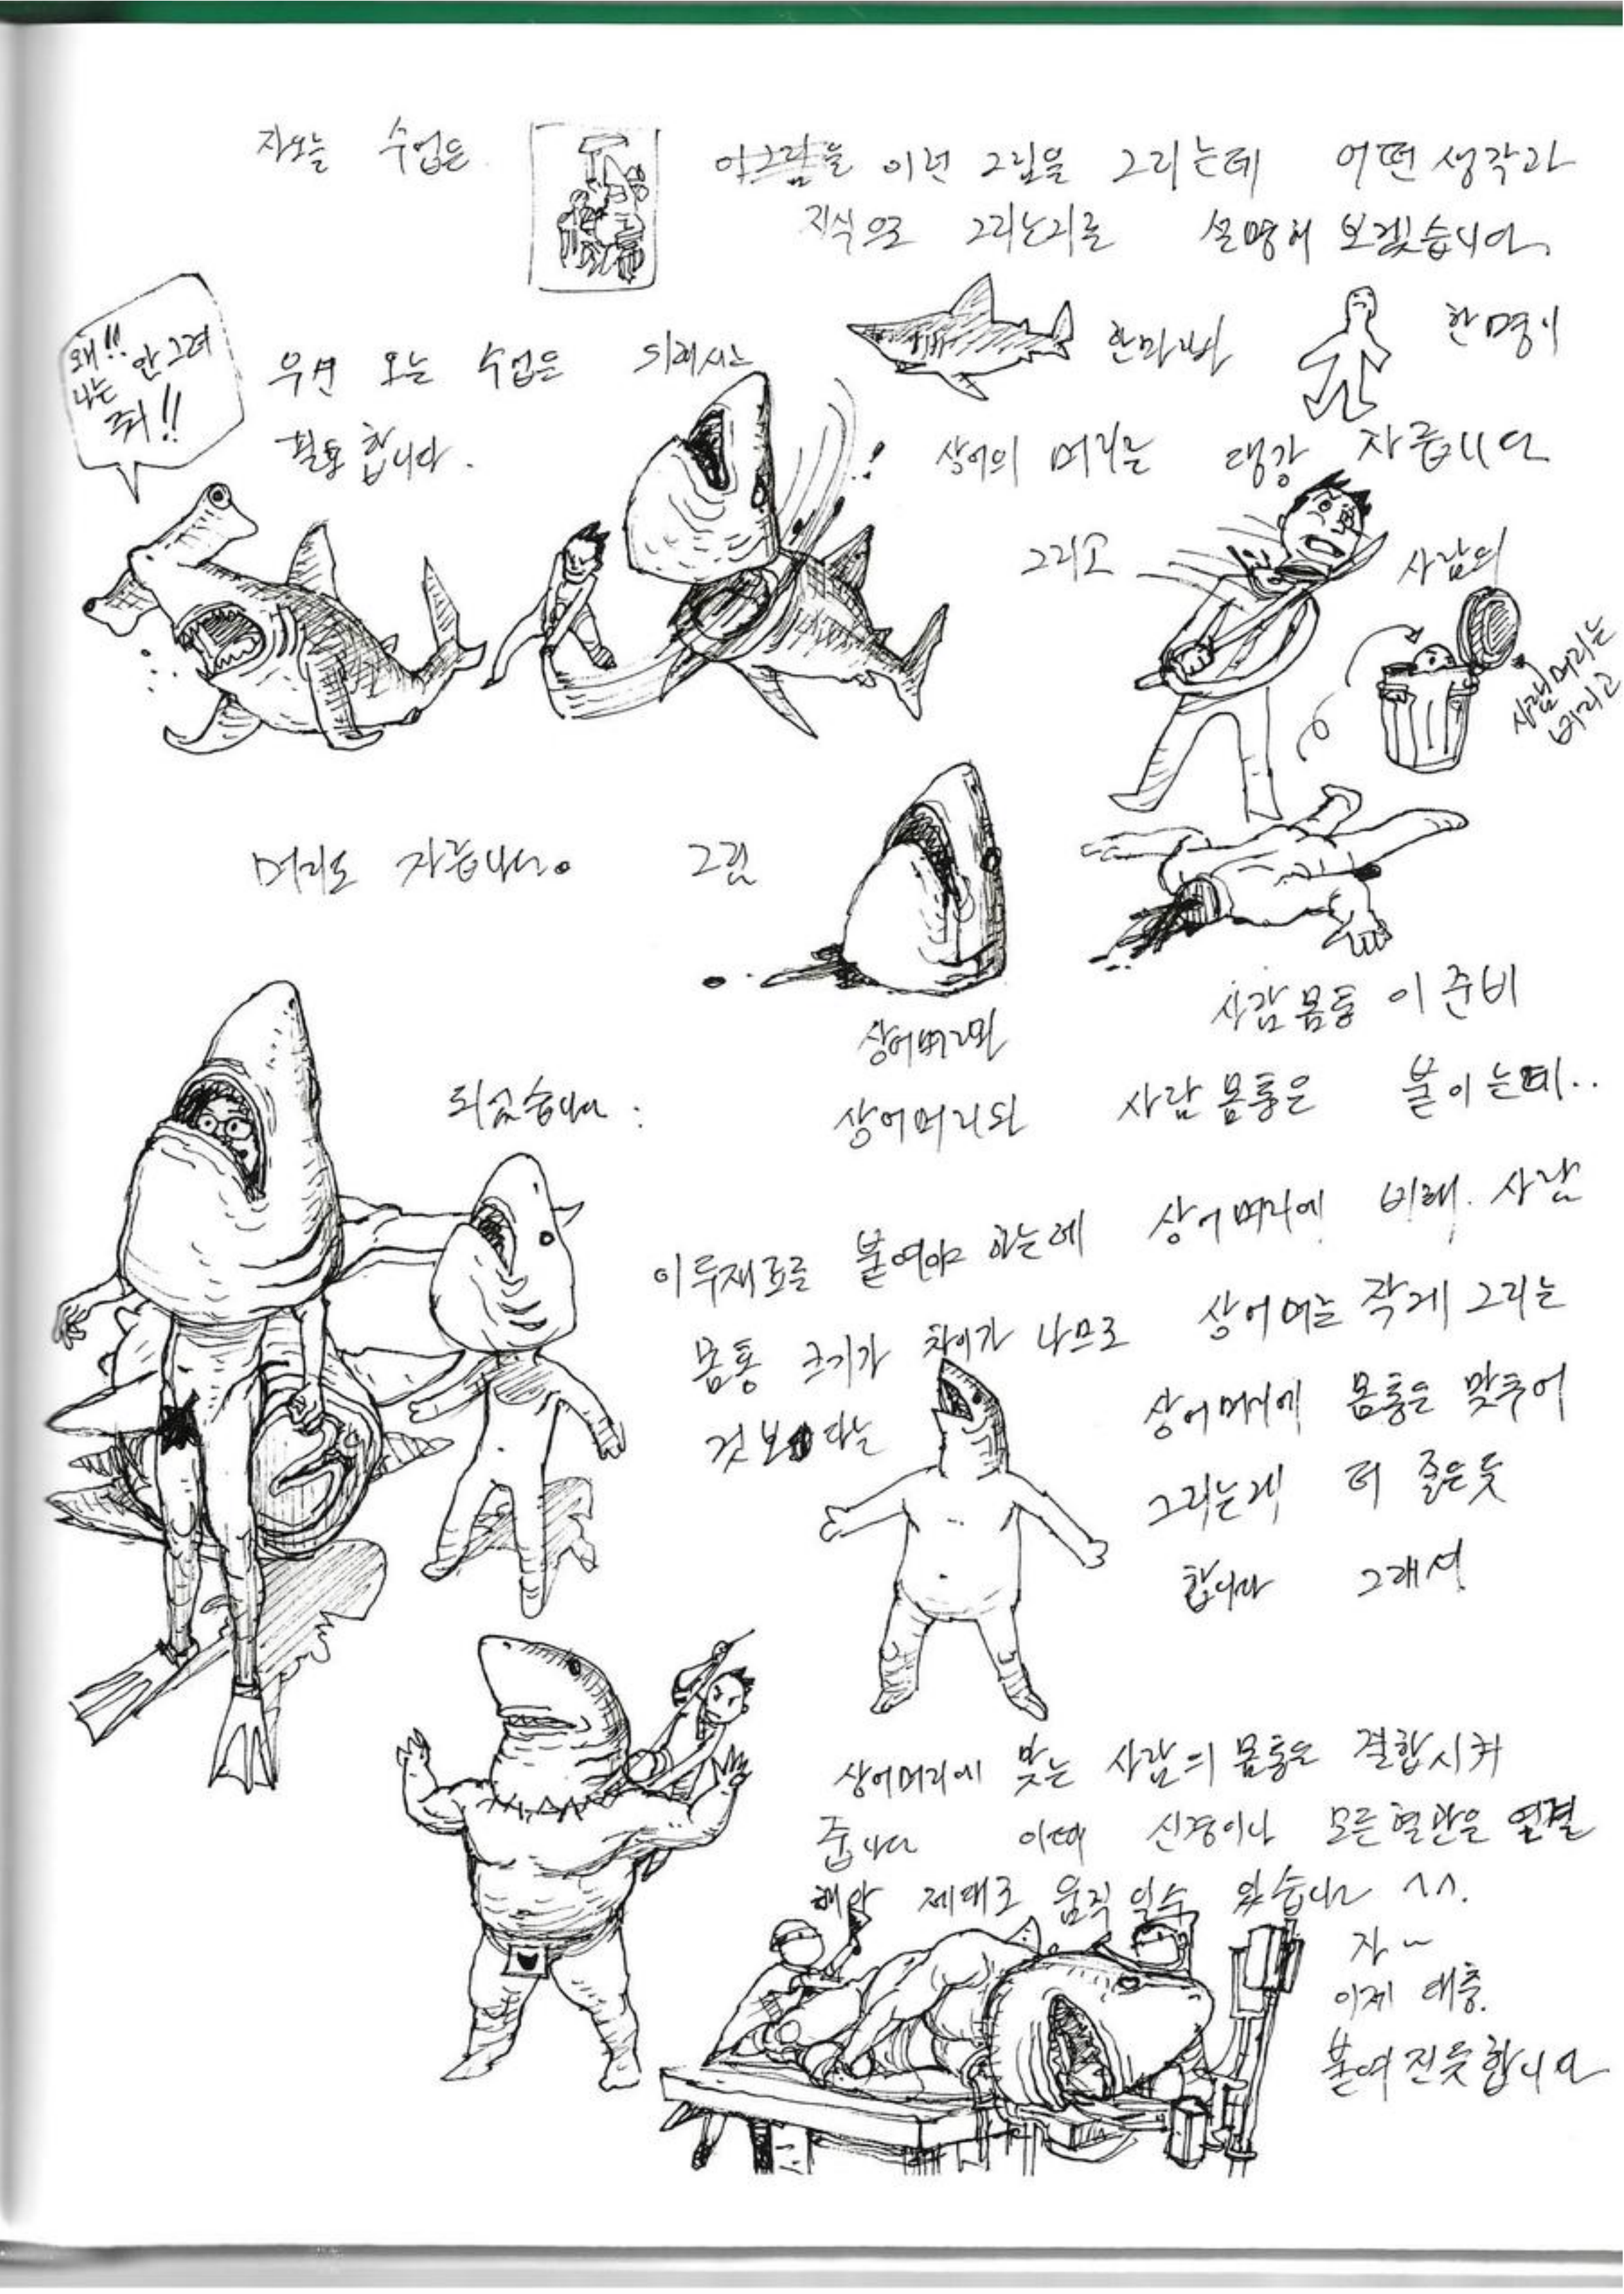 자오늘 수업은 이그림을 이런 그림을 그리는데 어떤 생각과
지식으로 그리는지를 설명해 보겠습니다.
왜!!
나는 안그려
줘!!
우선 오늘 수업은 한마리와 한명이
필요합니다.
상어의 머리를 댕강 자릅니다
그리고 사람의
사람머리는
버리고
머리도 자릅니다. 그럼
상어머리와
사람몸통이 준비
되었습니다.
상어머리와 사람몸통을 붙이는데..
이 두재료를 붙여야 하는데 상어머리에 비해. 사람
몸통 크기가 차이가 나므로 상어머리를 작게 그리는
것보다는 상어머리에 몸통을 맞추어
그리는게 더 좋은듯
합니다 그래서
상어머리에 맞는 사람의 몸통을 결합시켜
줍니다 이때 신경이나 모든혈관을 연결
해야 제대로 움직일수 있습니다 ^^.
자~
이제 대충.
붙여진듯합니다